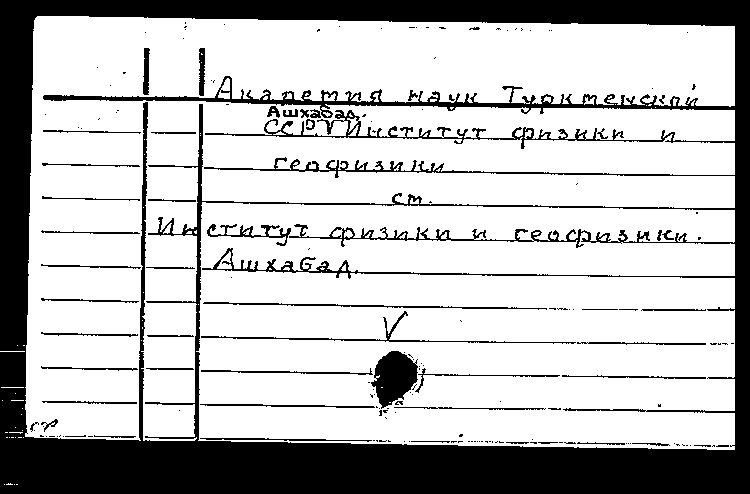 Академия наук Туркменской
Ашхабад.
ССР. V Институт физики и
геофизики.
см.
Институт физики и геофизики.
Ашхабад.
V